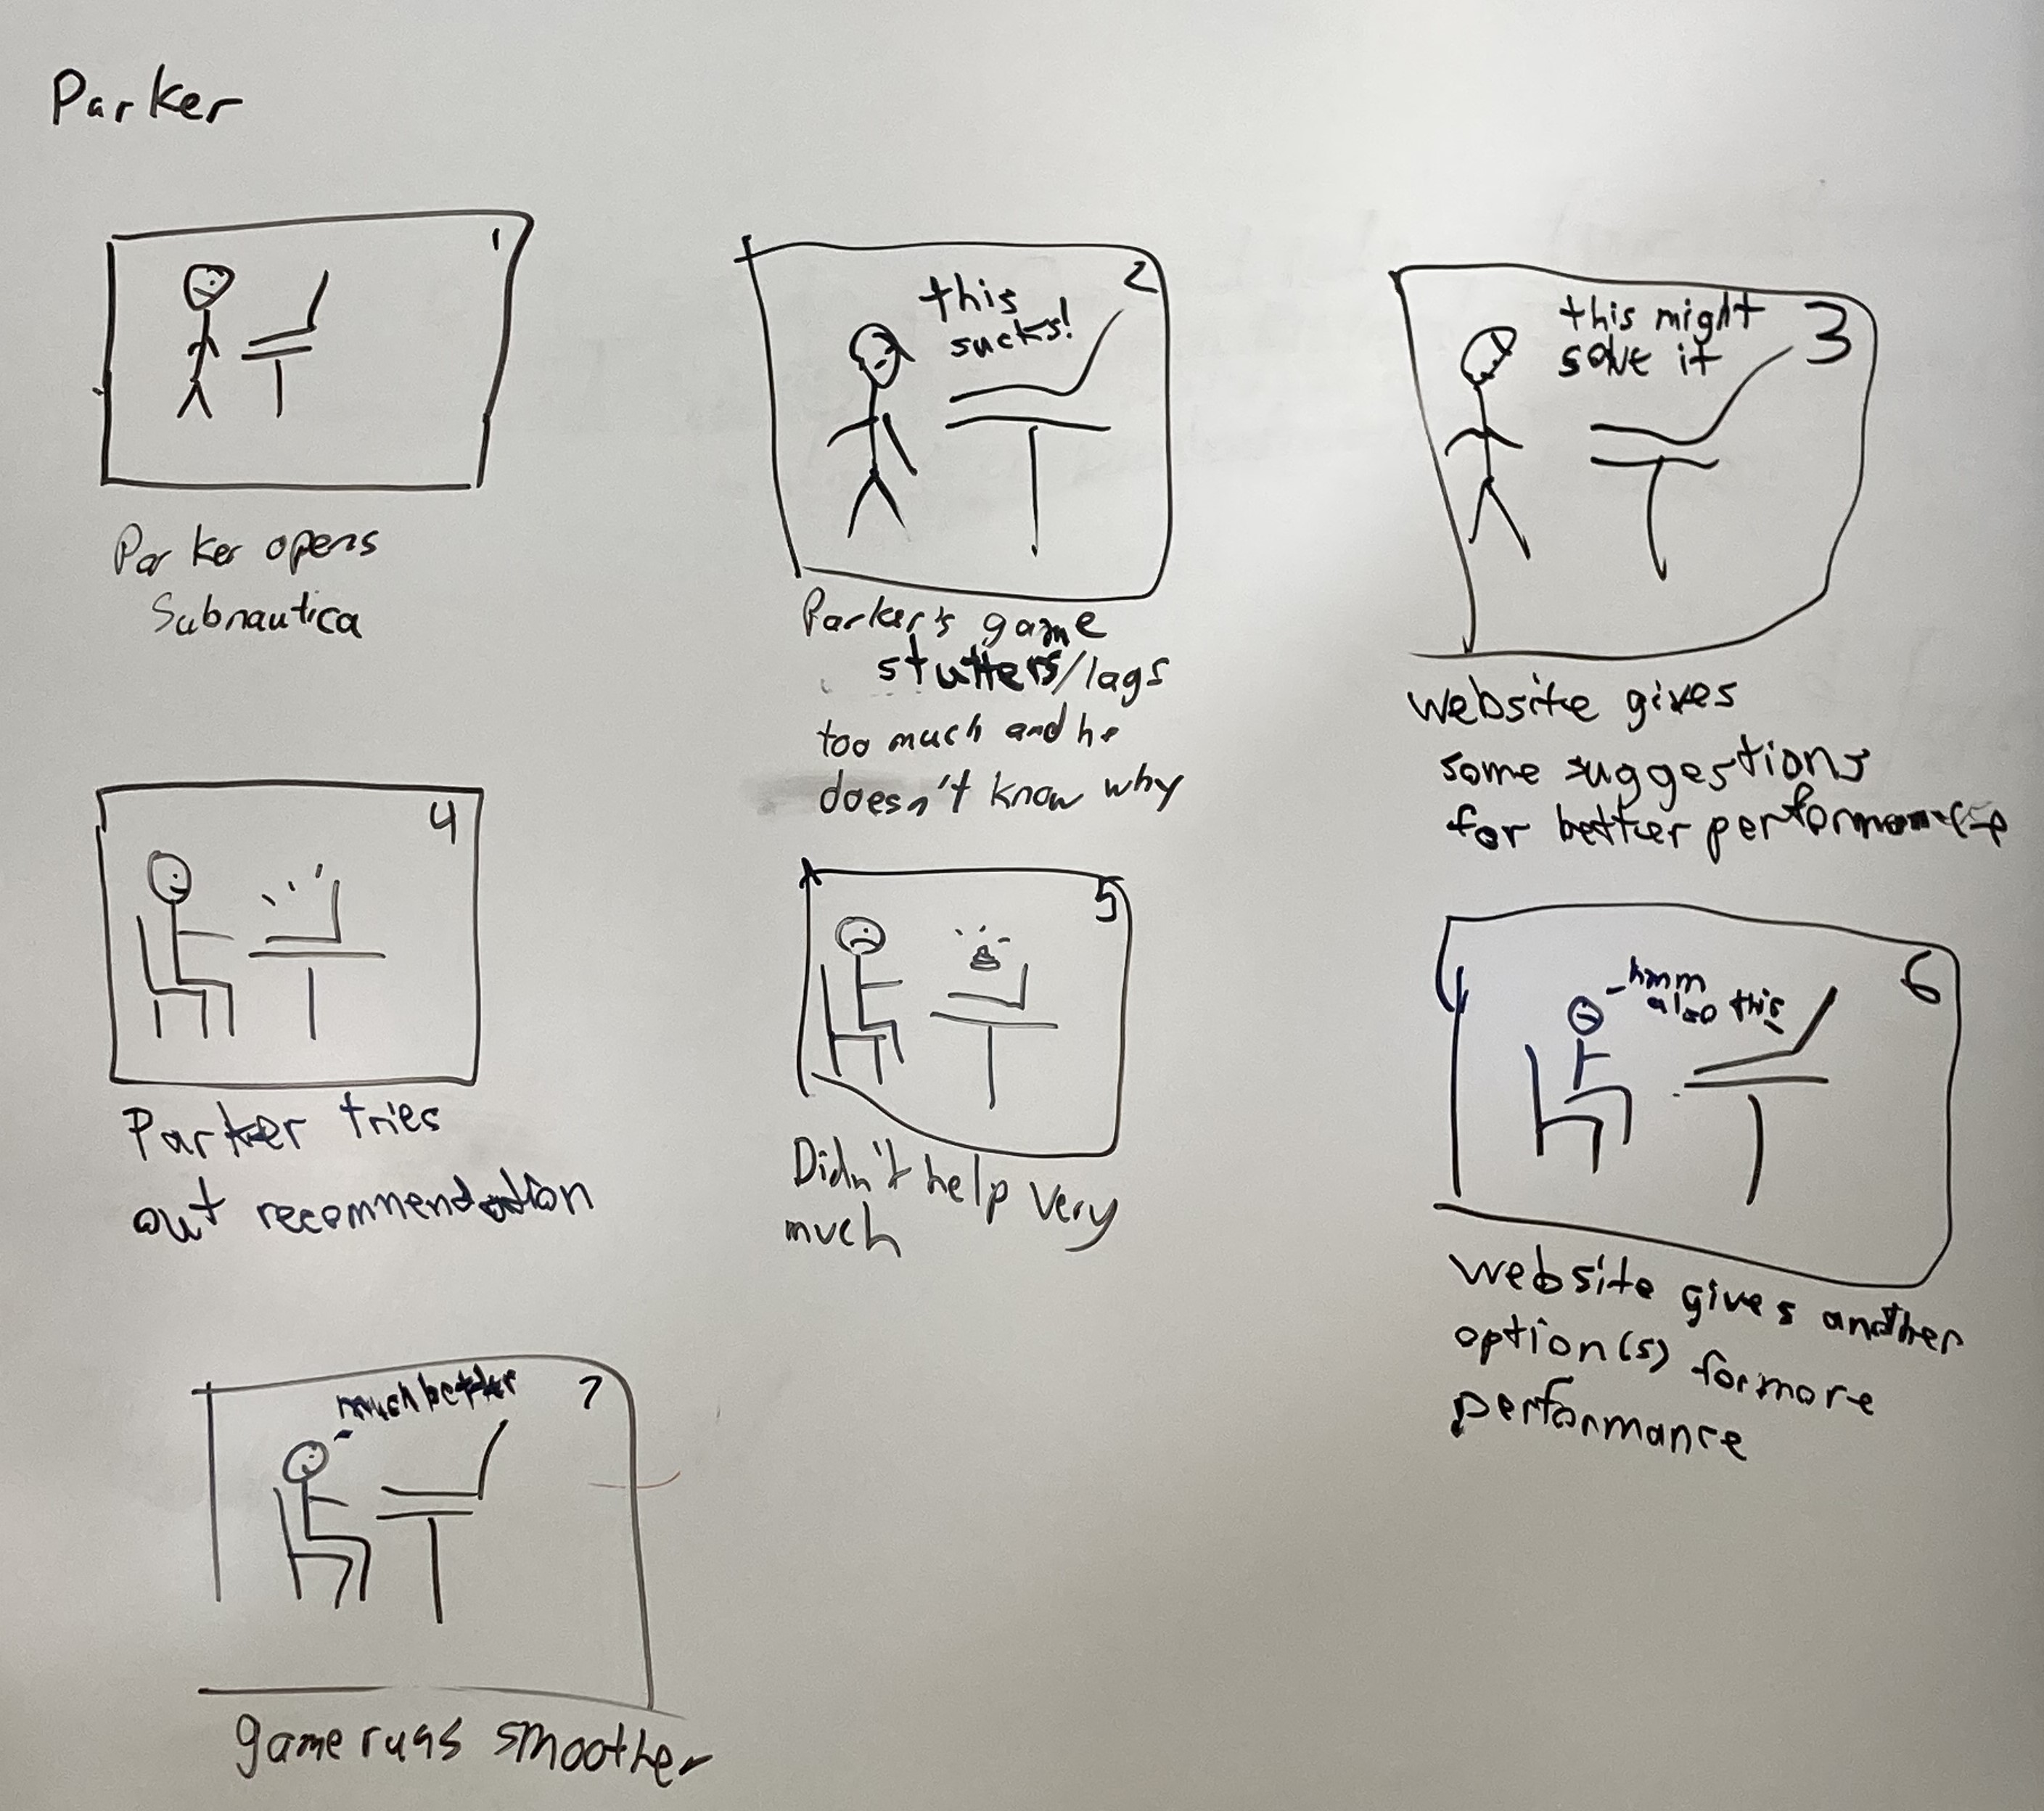 Parker
1
Parker opens
Subnautica
2
this
sucks!
Parker's game
stutters/lags
too much and he
doesn't know why
3
this might
solve it
website gives
some suggestions
for better performance
4
Parker tries
out recommendation
5
Didn't help very
much
6
hmm
also this
website gives another
option(s) for more
performance
7
much better
game runs smoother